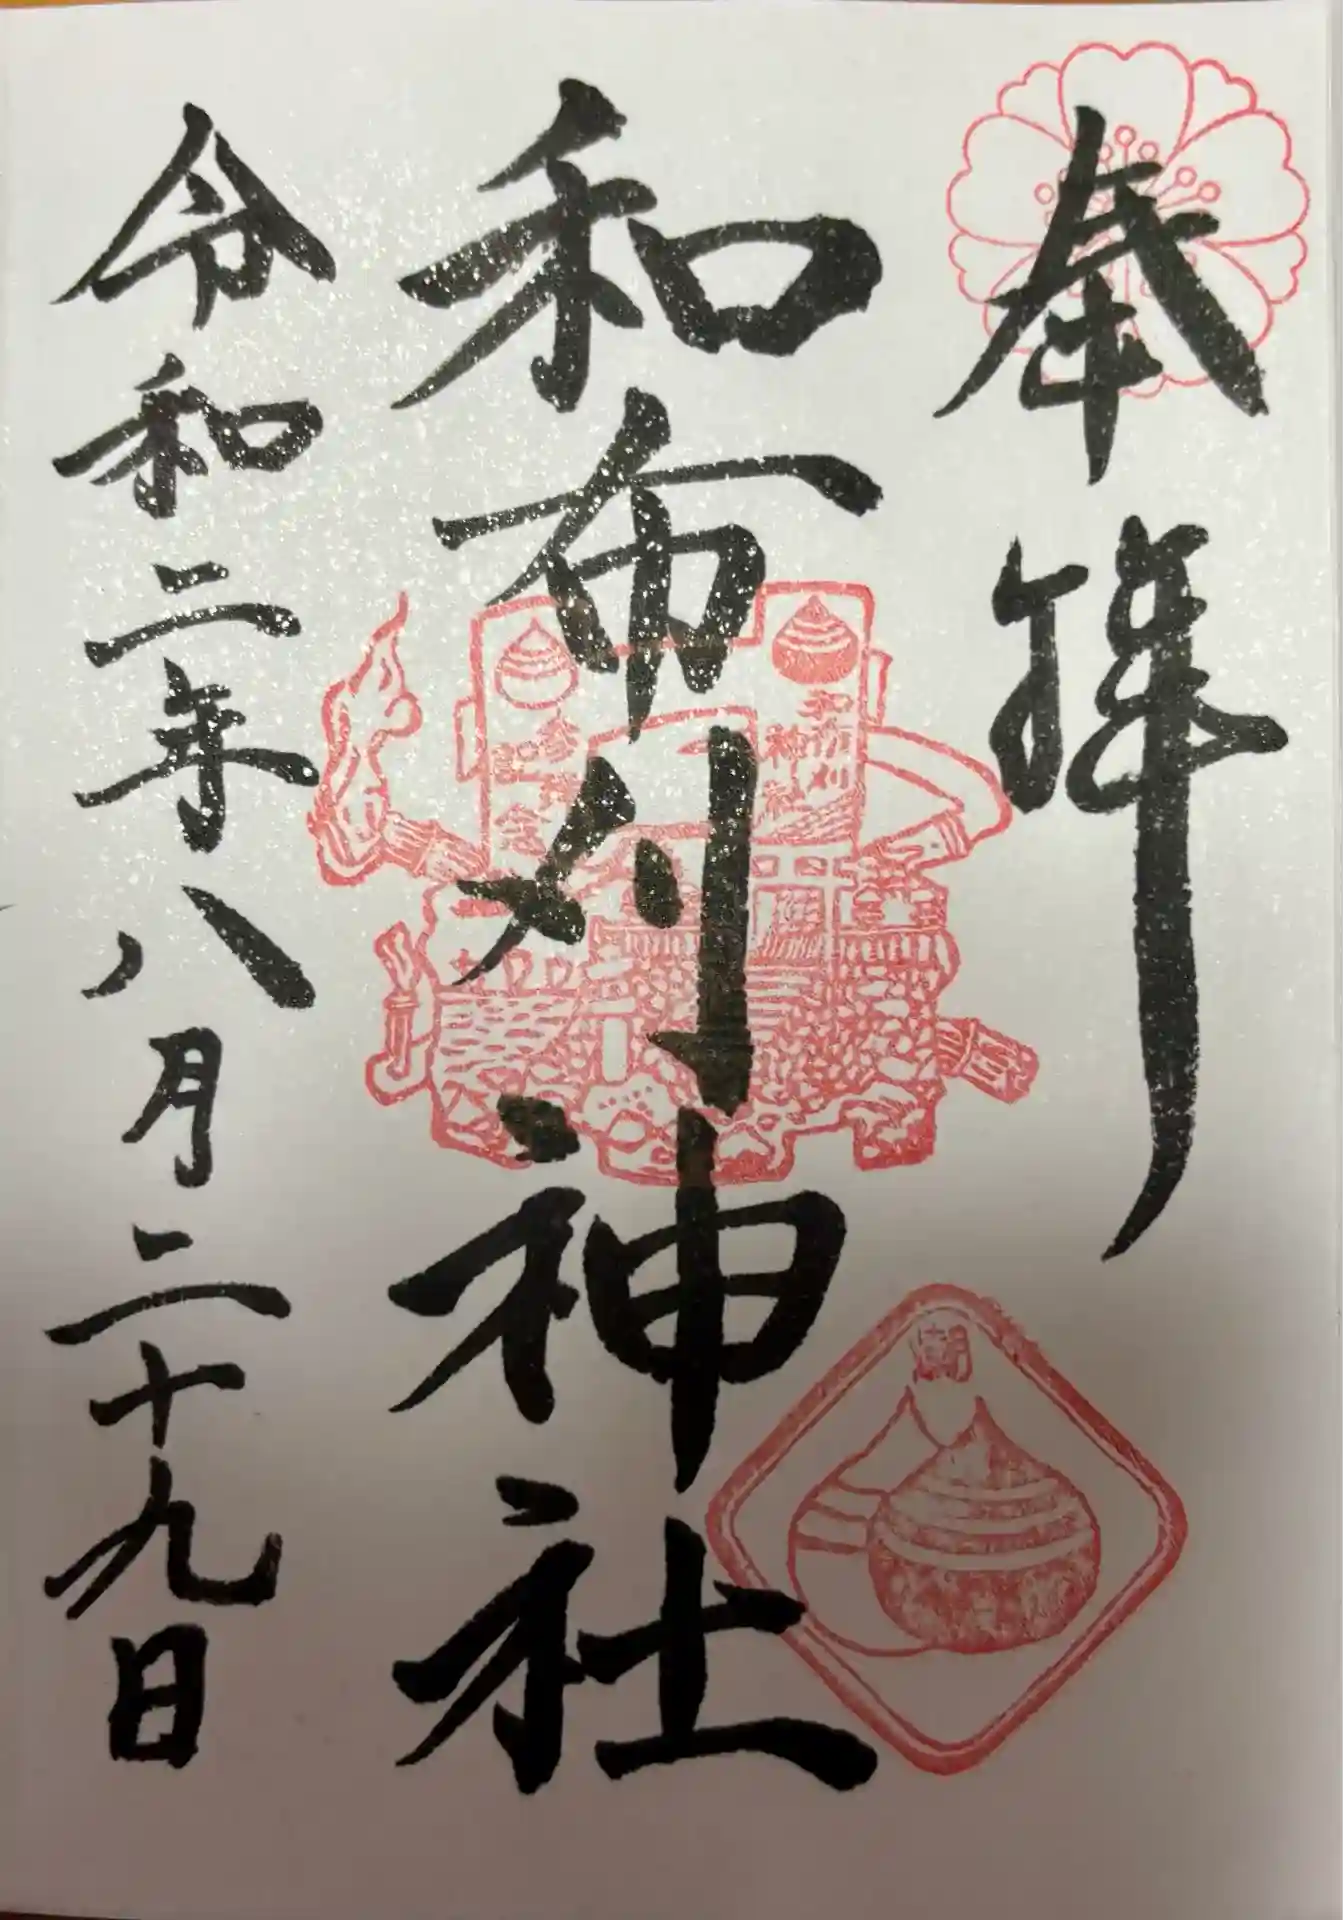 奉拝
和布刈神社
令和二年八月二十九日
和布刈
神社
潮